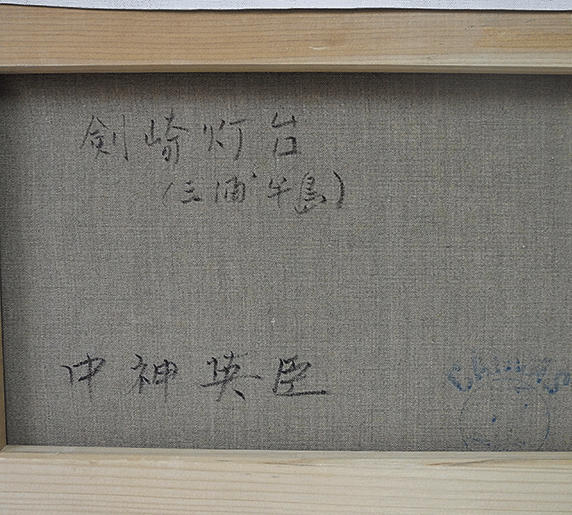 剣崎灯台
(三浦半島)
中神英臣